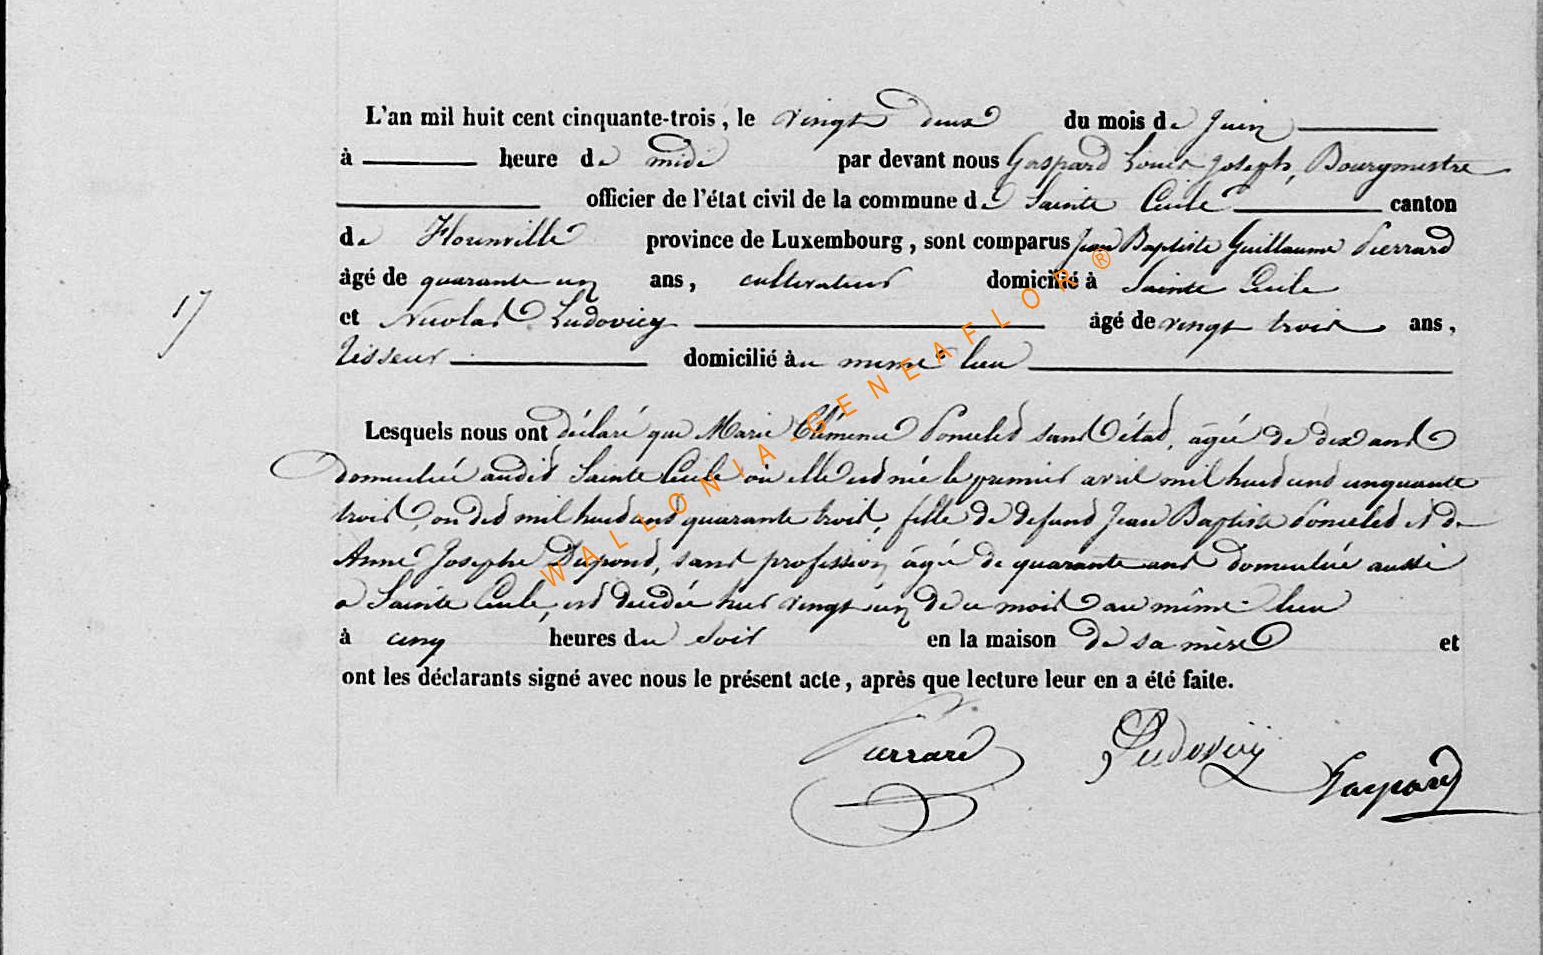 L'an mil huit cent cinquante-trois, le vingt deux du mois de Juin
à heure de midi par devant nous Gaspard Louis Joseph, Bourgmestre
officier de l'état civil de la commune de Sainte Cecile canton
de Florenville province de Luxembourg, sont comparus Jean Baptiste Guillaume Pierrard
âgé de quarante un ans, cultivateur domicilié à Sainte Cecile
17
et Nicolas Ludovicy âgé de vingt trois ans,
tisseur domicilié à u meme lieu
Lesquels nous ont déclaré que Marie Clémence Poncelet sans état, âgée de dix ans
domiciliée audit Sainte Cecile où elle est née le premier avril mil huit cent cinquante
trois, on dit mil huit cent quarante trois, fille de defunt Jean Baptiste Poncelet et de
Anne Josephe Dupont, sans profession âgée de quarante ans domiciliée aussi
a Sainte Cecile, est decedée hier vingt un de ce mois au même lieu
à cinq heures du soir en la maison de sa mère et
ont les déclarants signé avec nous le présent acte, après que lecture leur en a été faite.
Pierrard Ludovicy Gaspard
WALLONIA-GENEAFLOR ®